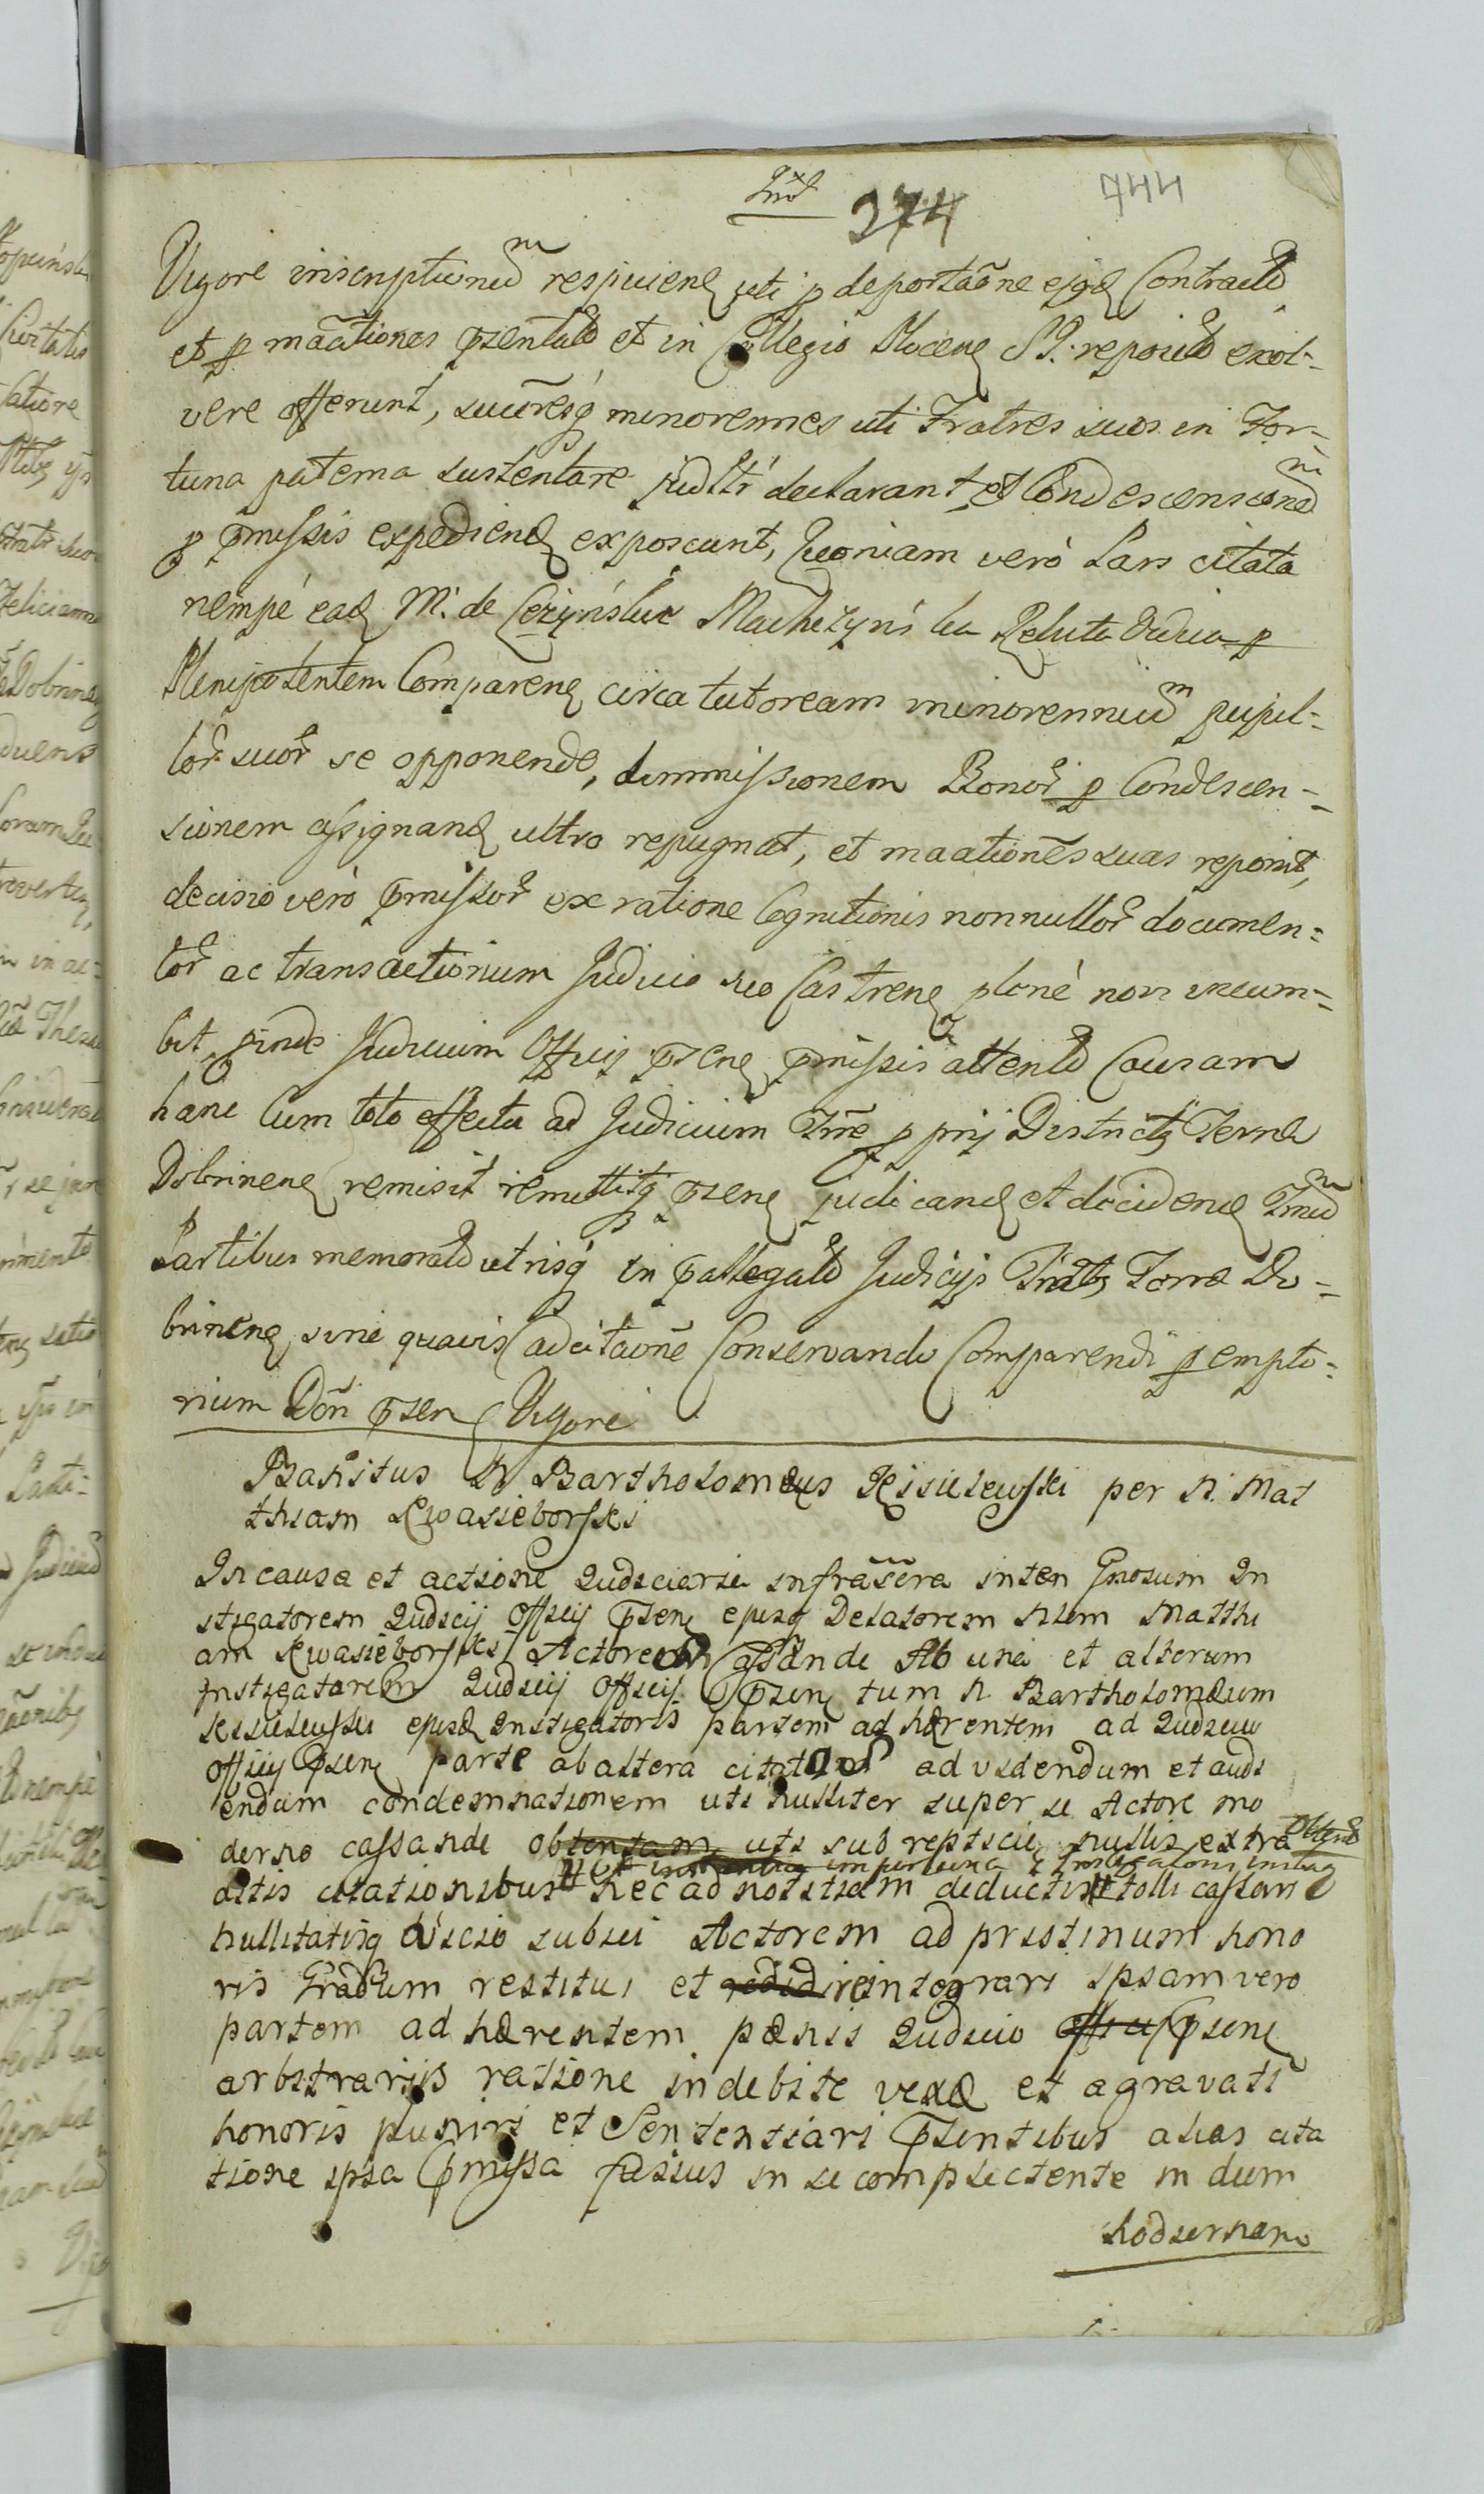 374
744
Vigore inscriptionũ respicienꝗ uti ꝑ deportãne ejqꝫ Contractũ
et ꝑ maãtiones p̃sentatũ et in Collegio Plocenꝗ S J. repositũ exol-
vere offerunt, succ̃resq́ minorennes uti Fratres suos in For-
tuna paterna sustentare judlr̃ declarant, et Condescensionẽ
ꝑ p̃missis expedienꝗ exposcunt, Quoniam verò Pars citata
nempé eadꝫ M. de Ceżyńskie Machczyńska Relicta Vidua ꝑ
Plenipotentem Comparenꝗ circa tutoream minorenniũ pupil-
lor̃ suor̃ se opponendo, dimmissionem Bonor̃ ꝑ Condescen-
sionem assignanꝗ ultro repugnat, et maationẽs suas reponit,
decisio verò p̃missor̃ ex ratione Cognitionis nonnullor̃ documen-
tor̃ ac transactionum Judicio suo Castrenꝗ planè non incum-
bit, proinde Judicium Officij p̃senꝗ p̃missis attentũ Causam
hanc Cum toto effectu ad Judicium Tr̃re ꝑ prij Districtꝫ Terræ
Dobrinenꝗ remisit remittitq́ p̃senꝗ judicanꝗ et decidenꝗ Tr̃mũ
Partibus memoratũ utrisq́ in p̃allegatũ Judicijs Tr̃rtbꝫ Terræ Do-
brinenꝗ, sine quavis adcitaõne Conservando Comparendi ꝑempto-
rium Dõni p̃sen Vigore
Banitus N Bartholomæus Kisielewski per N. Mat
thiam Kwasieborski
In causa et actione Judiciaria infrãscra inten Gnosum In
stigatorem Judicij Officij p̃senꝗ ejusq Delatorem Nlem Matthi
am Kwasieborski Actorem ab una et alterum
Instigatorem Judicij Officij p̃senꝗ tum N. Bartholomæum
Kisielewski ejusꝗ Instigatoris partem adhærentem ad Judicium
Officij p̃senꝗ parte ab altera citatũ ad videndum et audi
endum condemnationem uti nulliter super se Actore mo
derno cassande obtentam uti sub reptitie nullis extra
ditis citationibus nec ad notitiam deductis tolli cassari
nullitatisq vicio subici Actorem ad pristinum hono
ris Gradum restitui et reintegrari ipsam vero
partem adhærentem pænis Judicio p̃senꝗ
arbitrarijs ratione indebite vexæ et agravati
honoris puniri et Sententiari p̃sentibus alias cita
tione ipsa p̃missa fusius in se complectente in dum
hodiernam